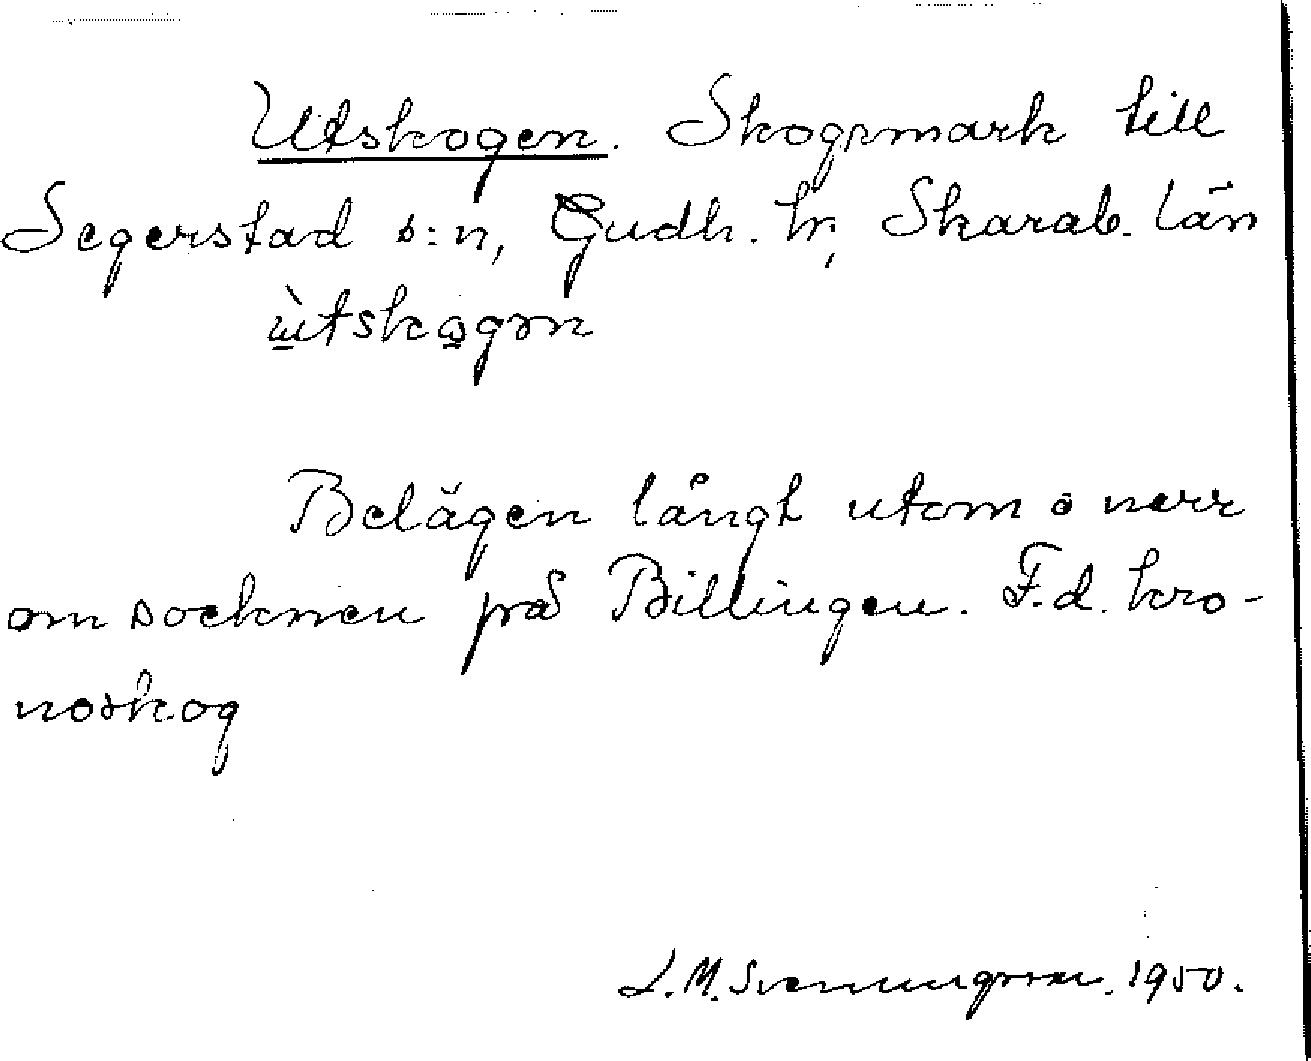 Utskogen. Skogsmark till
Segerstad s:n, Gudh. hr, Skarab. län
ùtskogən
Belägen långt utom o norr
om socknen på Billingen. F.d. kro-
noskog
L.M. Svenungsson. 1950.